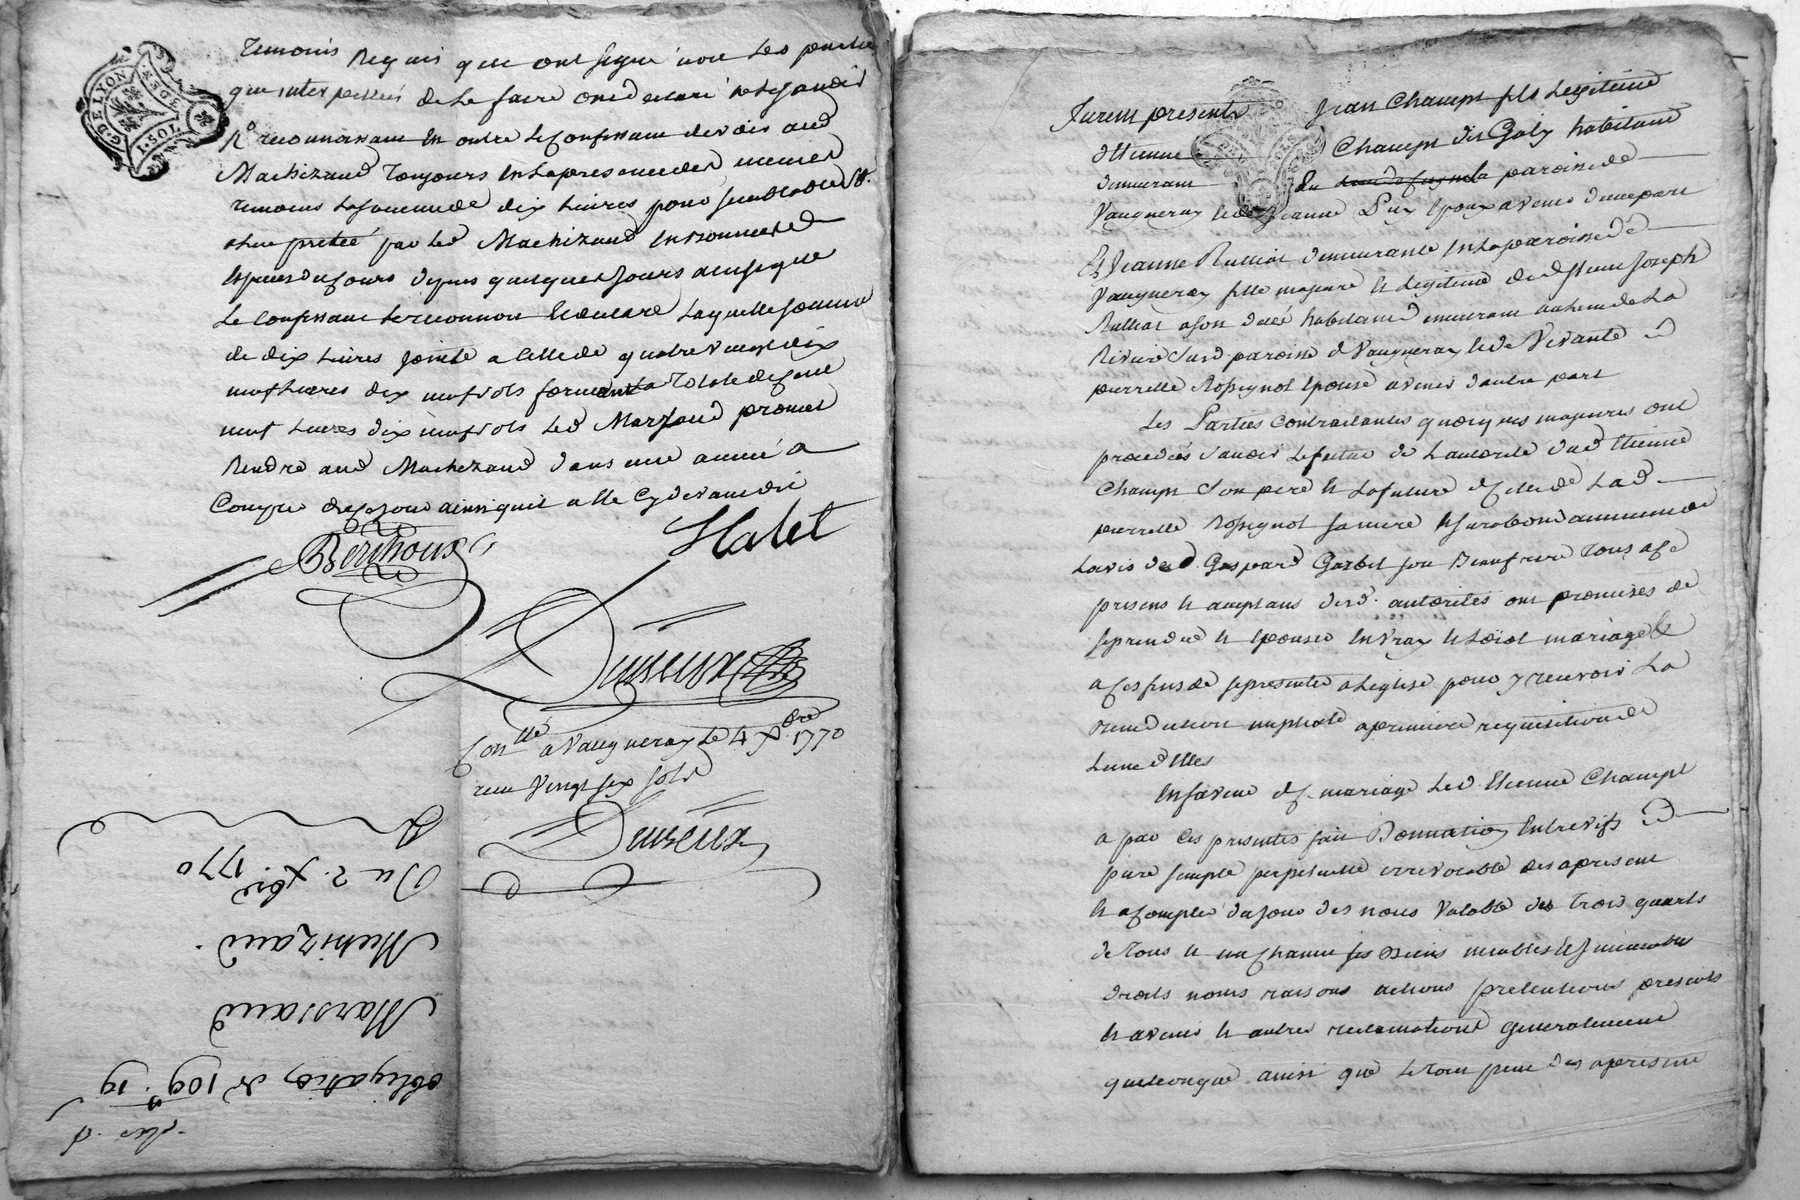 G. DE LYON
1. SOL
temoins requis qui ont signé non les parties
que interpellées de le faire ont declaré ne le sçavoir
reconnoissant en outre le confessant devoir aud
Machizaud toujours en la presence des memes
temoins la somme de dix livres pour semblable
a luy pretée par led Machizaud en bonnes
especes du cours depuis quelques jours ainsi que
le confessant le reconnoit et declare laquelle somme
de dix livres jointe a celle de quatre vingt dix
neuf livres dix neuf sols formant la totale de cent
neuf livres dix neuf sols led Marsaud promet
rendre aud Machizaud dans une année a
compter de ce jour ainsi qu'il a cy devant dit
Berthoux
Halet
Con.llé a Vaugneray le 4 Xbre 1770
recu vingt six sols
Du 2. Xbre 1770
Machizaud
Marsaud
obligation de 109ll. 19
Furent presents Jean Champt fils legitime
d'Etienne Champt habitant
demeurant paroisse de
Vaugneray et de Jeanne Puy epoux avenir d'une part
Et Jeanne Rulliat demeurante en la paroisse de
Vaugneray fille majeure et legitime de d Sieur Joseph
Rulliat a son decé habitant demeurant au lieu de La
Riviere susd. paroisse de Vaugneray et de Vivante
pierrette Rossignol epouse avenir d'autre part
Les Parties contractantes quoique majeures ont
procedées sçavoir le futur de l'autorité dud Etienne
Champt son pere et la future de celle de lad
pierrette Rossignol sa mere et surabondamment de
l'avis de d. Gaspard Garbit son Beaufrere tous a ce
presens et acceptans desd. autorités ont promises de
se prendre et epouser en vray et loial mariage et
a ces fins de se presenter a l'eglise pour y recevoir la
benediction nuptiale a premiere requisition de
l'une d'Elles
En faveur de ce mariage led. Etienne Champt
a par ces presentes fait Donnation Entrevifs
pure simple perpetuelle irrevocable des apresent
et a compter du jour des noces Valable des trois quarts
de tous et un chacun ses Biens meubles et immeubles
droits noms raisons actions pretentions presents
et avenir et autres reclamations generalement
quelconque ainsi que le tout peut des apresent